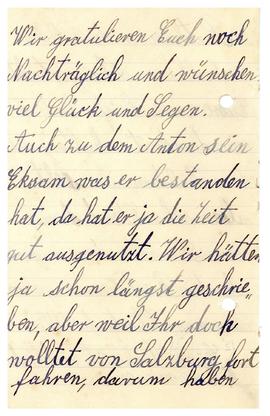 Wir gratulieren Euch noch
Nachträglich und wünschen
viel Glück und Segen.
Auch zu dem Anton sein
Eksam was er bestanden
hat, da hat er ja die Zeit
gut ausgenutzt. Wir hätten
ja schon längst geschrie=
ben, aber weil Ihr doch
wolltet von Salzburg fort
fahren, darum haben